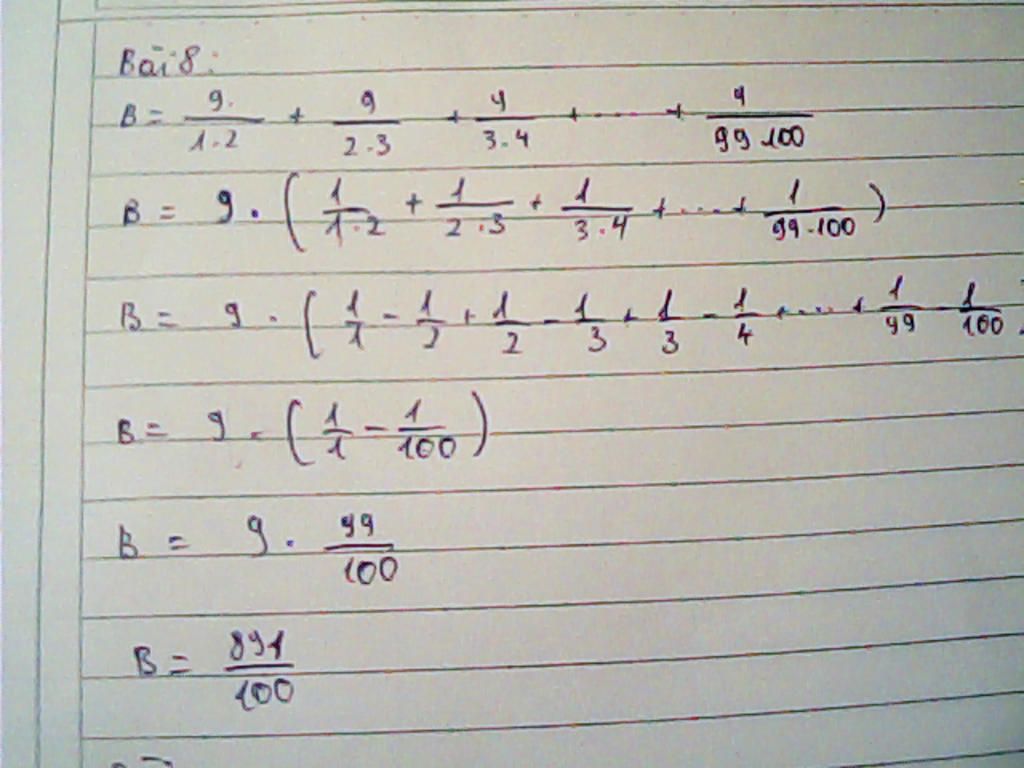 Bài 8:
B = 9/1.2 + 9/2.3 + 9/3.4 + ..... + 9/99.100
B = 9 . ( 1/1.2 + 1/2.3 + 1/3.4 + .... + 1/99.100 )
B = 9 . ( 1/1 - 1/2 + 1/2 - 1/3 + 1/3 - 1/4 + .... + 1/99 - 1/100 )
B = 9 . ( 1/1 - 1/100 )
B = 9 . 99/100
B = 891/100